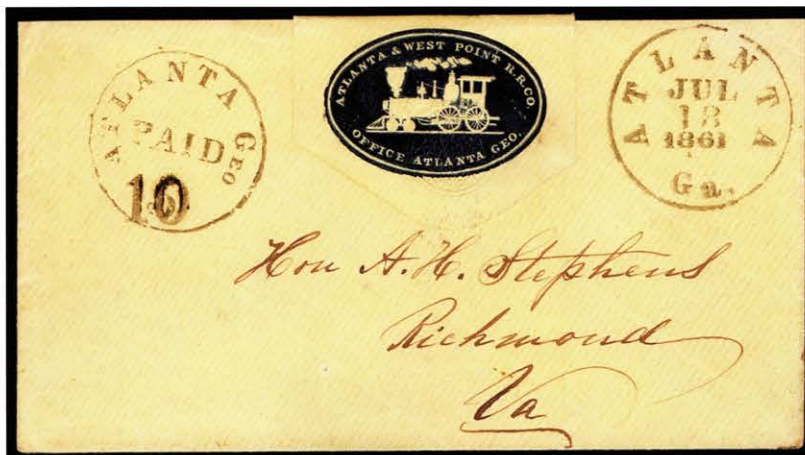 ATLANTA GEO
PAID
10
ATLANTA & WEST POINT R.R.CO.
OFFICE ATLANTA GEO.
ATLANTA
JUL
18
1861
Ga.
Hon A. H. Stephens
Richmond
Va